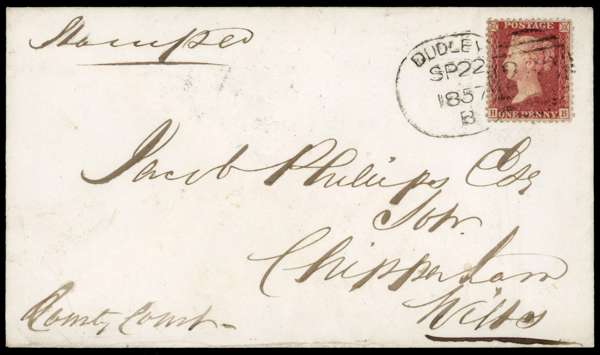 Stamped
DUDLEY
SP 22
1857
B
POSTAGE
H ONE PENNY B
Jacob Phillips Esq
Solr
Chippenham
Wilts
County Court